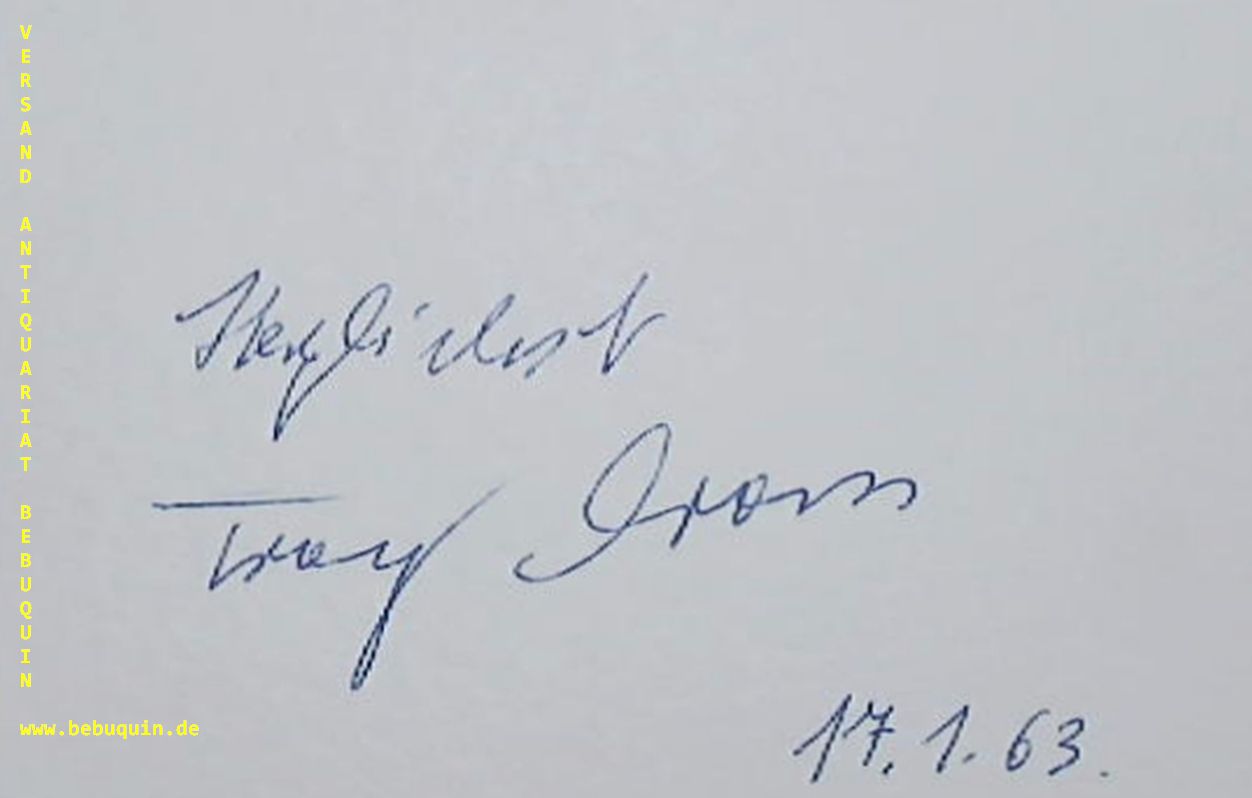 VERSAND ANTIQUARIAT BEBUQUIN
www.bebuquin.de
Herzlichst
17.1.63.